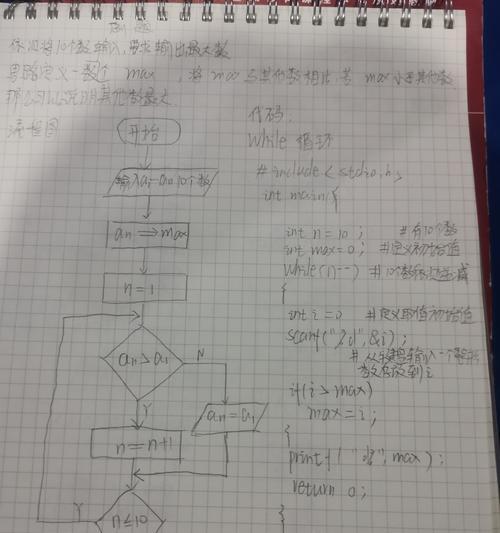 依次将10个数输入,要求输出最大数
思路定义一数 max ,将 max 与其他数相比 若 max 小于其他数
那么可以说明其他数最大
流程图
开始
输入a₁-a₁₀ 10个数
aₙ⇒max
n=1
aₙ>a₁
N
Y
aₙ=a₁
n=n+1
n≤10
Y
代码:
while 循环
#include<stdio.h>
int main{
int n=10; #有10个数
int max=0; #定义初始值
while(n--) #10个数依次递减
{
int i=0 #定义取值初始值
scanf("%d",&i);
#从键盘输入一个
数存放到i
if(i>max)
max=i;
{
printf("%d",max);
return 0;
}